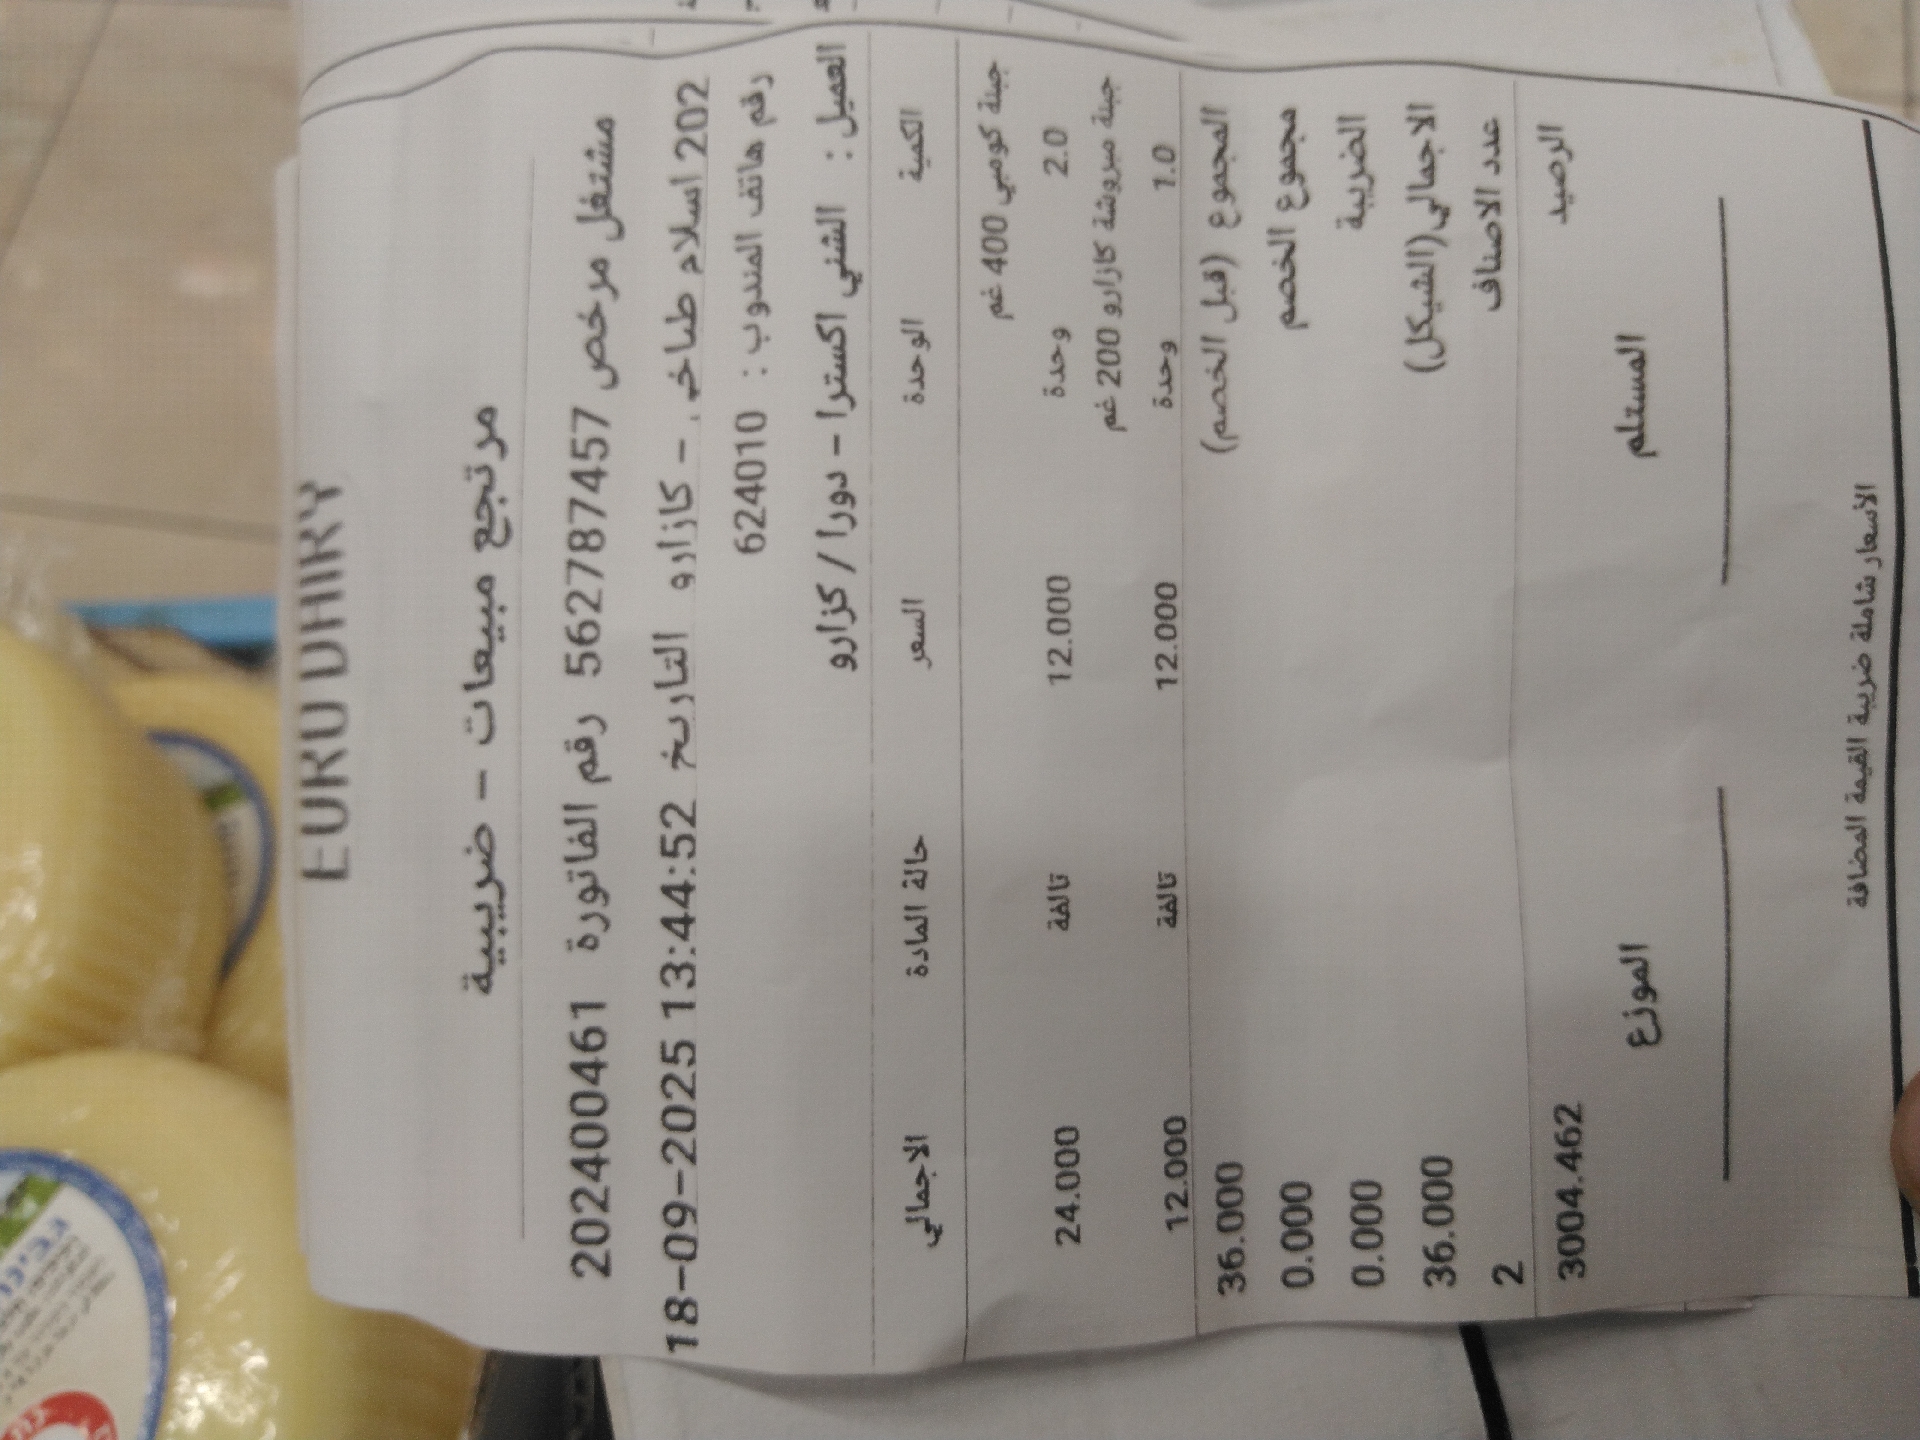 EURO DAIRY
مرتجع مبيعات - ضريبية
مشتغل مرخص 562787457 رقم الفاتورة 202400461
202 اسلام طباخي - كازارو التاريخ 18-09-2025 13:44:52
رقم هاتف المندوب : 624010
العميل : الشني اكسترا - دورا / كزارو
الكمية الوحدة السعر حالة المادة الاجمالي
جبنة كومبي 400 غم
2.0 وحدة 12.000 تالفة 24.000
جبنة مبروشة كازارو 200 غم
1.0 وحدة 12.000 تالفة 12.000
المجموع (قبل الخصم) 36.000
مجموع الخصم 0.000
الضريبة 0.000
الاجمالي(الشيكل) 36.000
عدد الاصناف 2
الرصيد 3004.462
المستلم الموزع
الأسعار شاملة ضريبة القيمة المضافة